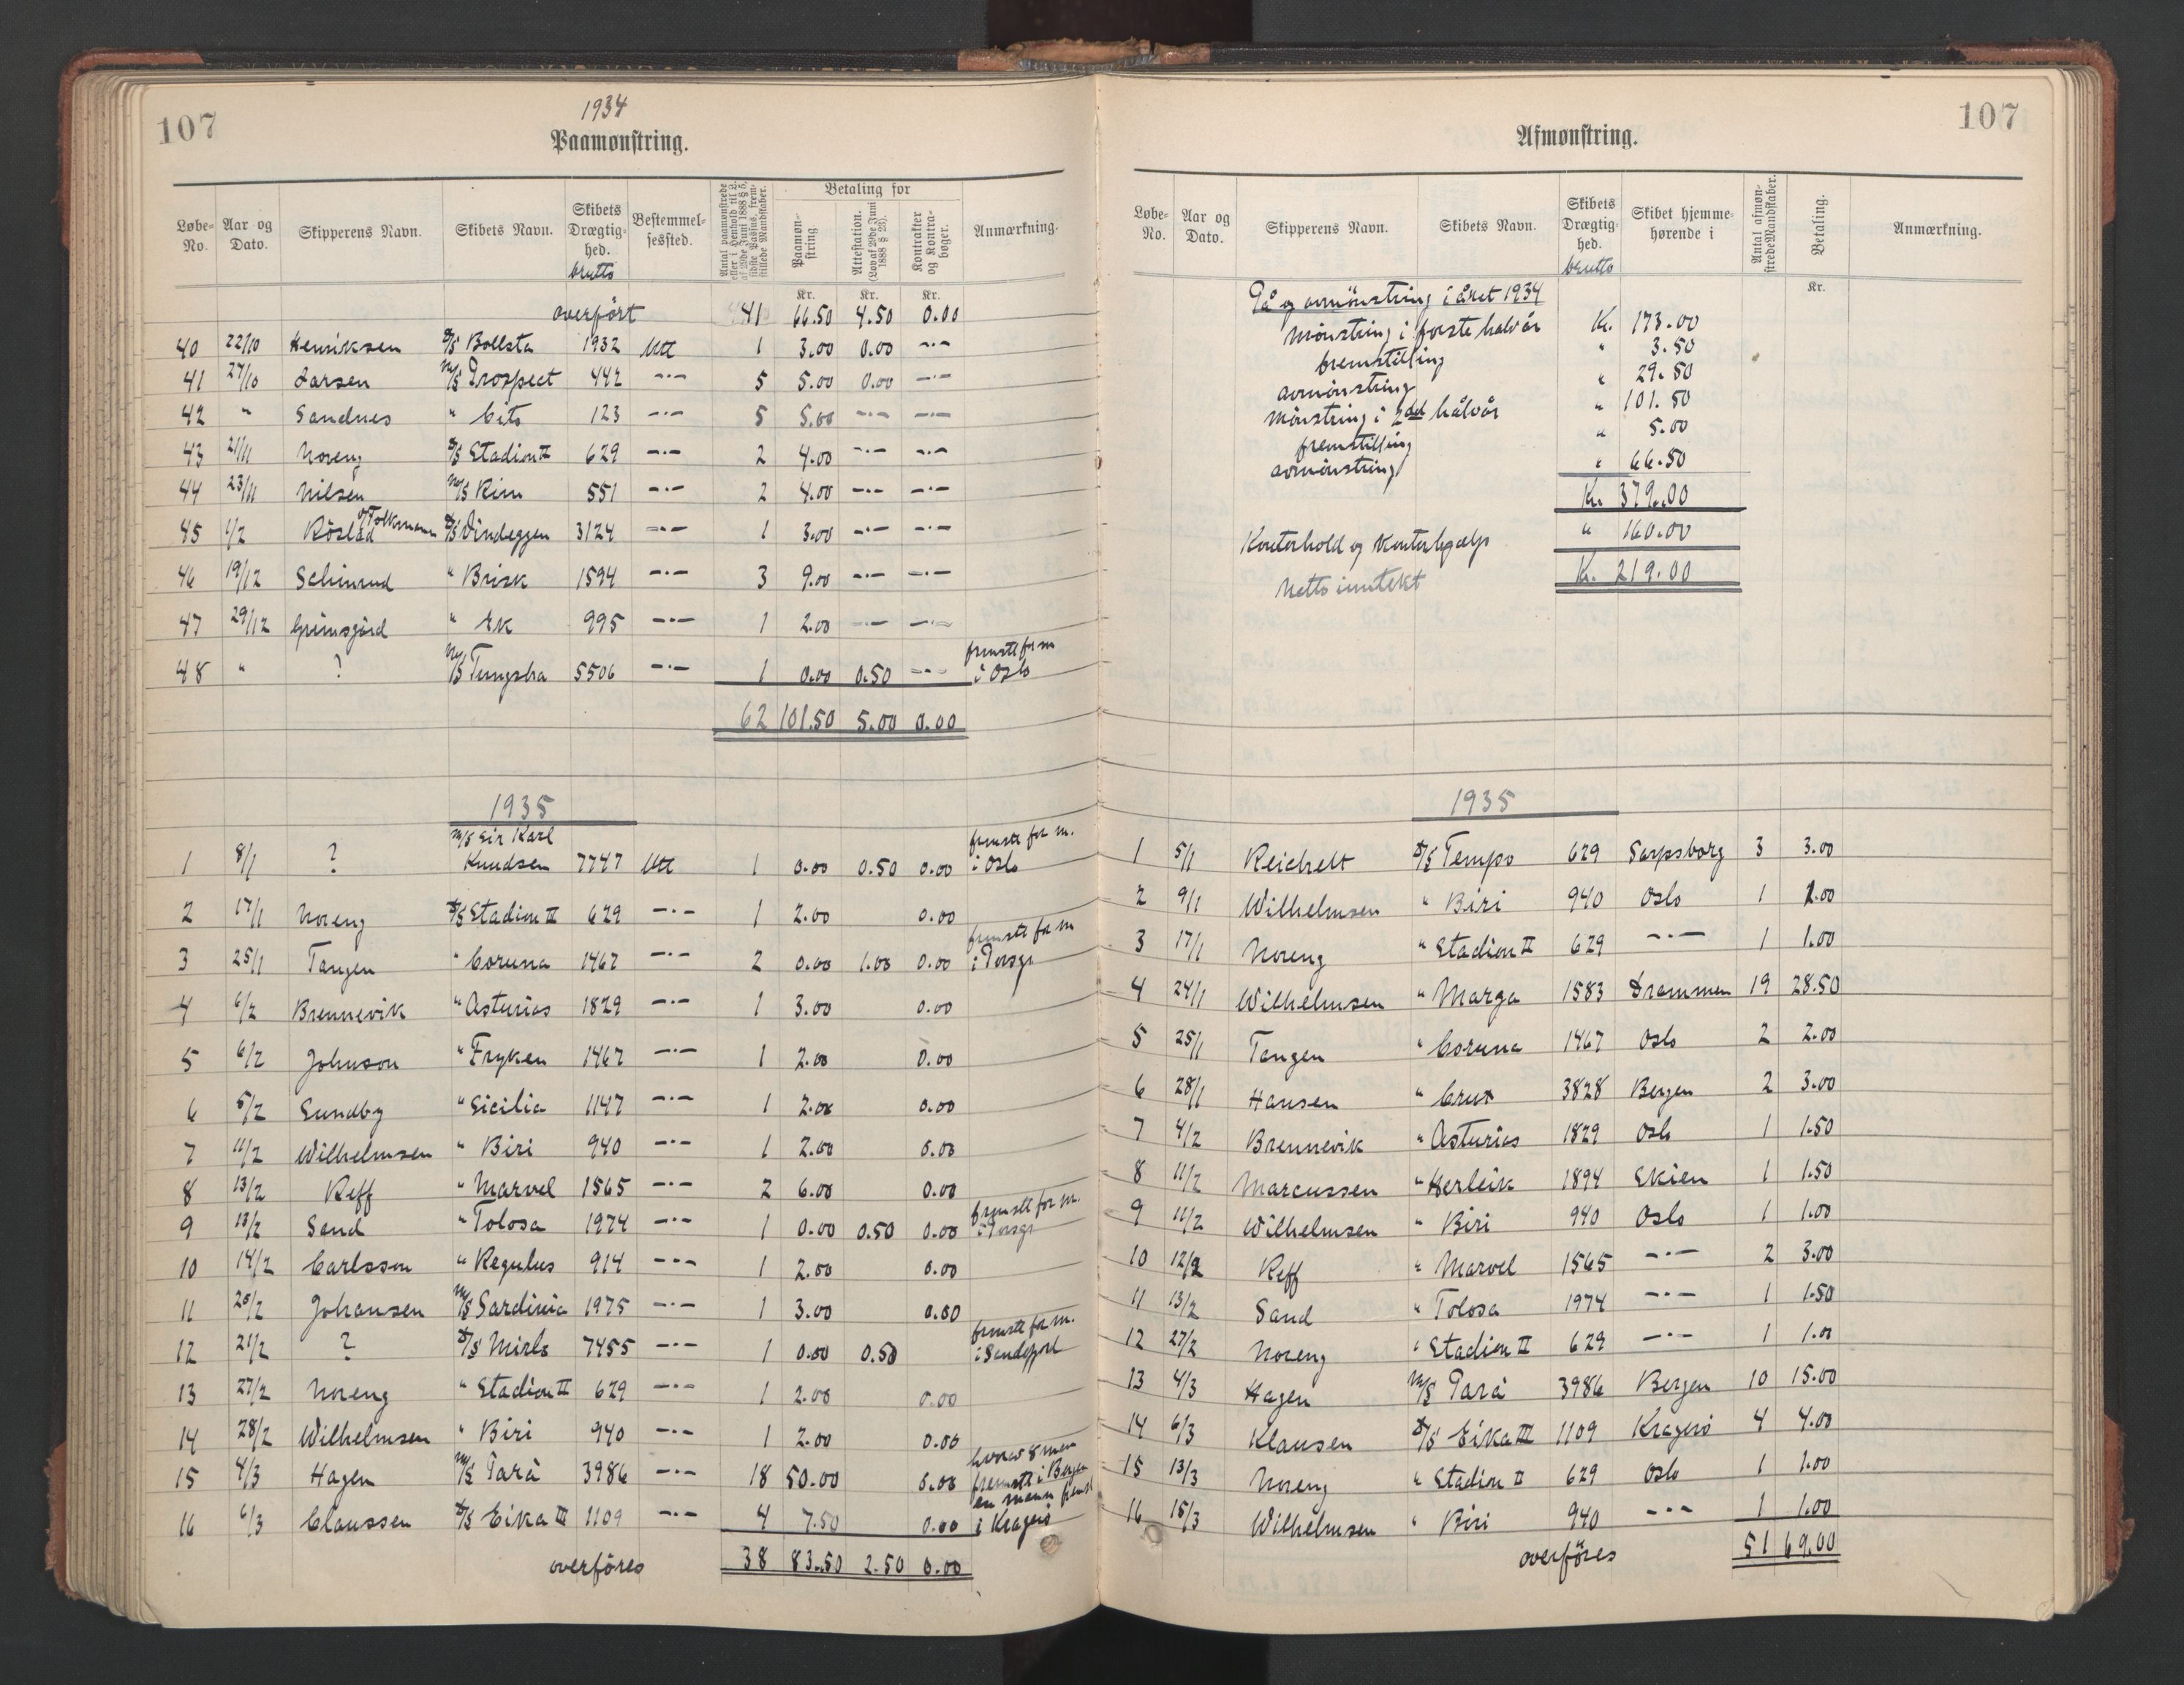 107
1934
Paamønstring.
Løbe-No. | Aar og Dato. | Skipperens Navn. | Skibets Navn. | Skibets Drægtighed. brutto | Bestemmelsessted. | Antal paamønstrede eller i Henhold til L. af 29de Juni 1888 § 5, sidste Passus, fremstillede Mandskaber. | Betaling for Paamønstring | Attestation. (Lov af 29de Juni 1888 § 23). | Kontrakter og Kontrabøger. | Anmærkning.
Kr. Kr. Kr.
overført 41 66.50 4.50 0.00
40 22/10 Henriksen D/S Bollsta 1932 Utl 1 3.00 0.00 -"-
41 27/10 Larsen M/S Prospect 442 -"- 5 5.00 0.00 -"-
42 " Sandnes " Cito 123 -"- 5 5.00 -"- -"-
43 21/11 Noreng D/S Stadion II 629 -"- 2 4.00 -"- -"-
44 23/11 Nilsen M/S Rim 551 -"- 2 4.00 -"- -"-
45 1/2 Røslad og Folkmann D/S Vindeggen 3124 -"- 1 3.00 -"- -"-
46 19/12 " Brisk 1594 -"- 3 9.00 -"- -"-
47 29/12 Grimsgård " Ek 995 -"- 1 2.00 -"- -"-
48 " ? M/S 5506 -"- 1 0.00 0.50 -"- fremst for m i Oslo
62 101.50 5.00 0.00
1935
1 8/1 ? M/S Sir Karl Knudsen 7747 Utl 1 0.00 0.50 0.00 fremst for m. i Oslo
2 17/1 Noreng D/S Stadion II 629 -"- 1 2.00 0.00
3 25/1 Tangen " Coruna 1467 -"- 2 0.00 1.00 0.00 fremst for m i Porsgr
4 6/2 Brennevik " Asturias 1829 -"- 1 3.00 0.00
5 6/2 Johnson " Fryken 1467 -"- 1 2.00 0.00
6 5/2 Sundby " Sicilia 1147 -"- 1 2.00 0.00
7 11/2 Wilhelmsen " Biri 940 -"- 1 2.00 0.00
8 13/2 Reff " Marvel 1565 -"- 2 6.00 0.00
9 13/2 Sand " Tolosa 1974 -"- 1 0.00 0.50 0.00 fremst for m. i Porsgr
10 14/2 Carlsson " Regulus 914 -"- 1 2.00 0.00
11 20/2 Johansen M/S Sardinia 1975 -"- 1 3.00 0.00
12 21/2 ? D/S Mirlo 7455 -"- 1 0.00 0.50 fremst for m. i Sandefjord
13 27/2 Noreng " Stadion II 629 -"- 1 2.00 0.00
14 28/2 Wilhelmsen " Biri 940 -"- 1 2.00 0.00
15 4/3 Hagen M/S Parå 3986 -"- 18 50.00 0.00 hvorav 8 men fremst i Bergen
16 6/3 Claussen D/S Eika III 1109 -"- 4 7.50 0.00 en mann fremst i Kragerö
overføres 38 83.50 2.50 0.00
107
Afmønstring.
Løbe-No. | Aar og Dato. | Skipperens Navn. | Skibets Navn. | Skibets Drægtighed. brutto | Skibet hjemmehørende i | Antal afmønstrede Mandskaber. | Betaling. | Anmærkning.
Kr.
På og avmönstring i året 1934
Mönstring i forste halvår Kr. 173.00
fremstilling " 3.50
avmönstring " 29.50
Mönstring i 2det halvår " 101.50
fremstilling " 5.00
avmönstring " 66.50
Kr. 379.00
Kontorhold og kontorhjælp " 160.00
Netto inntekt Kr. 219.00
1935
1 5/1 Reichelt D/S Tempo 629 Sarpsborg 3 3.00
2 9/1 Wilhelmsen " Biri 940 Oslo 1 1.00
3 17/1 Noreng " Stadion II 629 -"- 1 1.00
4 24/1 Wilhelmsen " Marga 1583 Drammen 19 28.50
5 25/1 Tangen " Coruna 1467 Oslo 2 2.00
6 28/1 Hansen " Crux 3828 Bergen 2 3.00
7 4/2 Brennevik " Asturias 1829 Oslo 1 1.50
8 11/2 Marcussen " Herleik 1894 Skien 1 1.50
9 11/2 Wilhelmsen " Biri 940 Oslo 1 1.00
10 12/2 Reff " Marvel 1565 -"- 2 3.00
11 13/2 Sand " Tolosa 1974 -"- 1 1.50
12 27/2 Noreng " Stadion II 629 -"- 1 1.00
13 4/3 Hagen M/S Parå 3986 Bergen 10 15.00
14 6/3 Klausen D/S Eika III 1109 Kragerö 4 4.00
15 13/3 Noreng " Stadion II 629 Oslo 1 1.00
16 15/3 Wilhelmsen " Biri 940 -"- 1 1.00
overføres 51 69.00